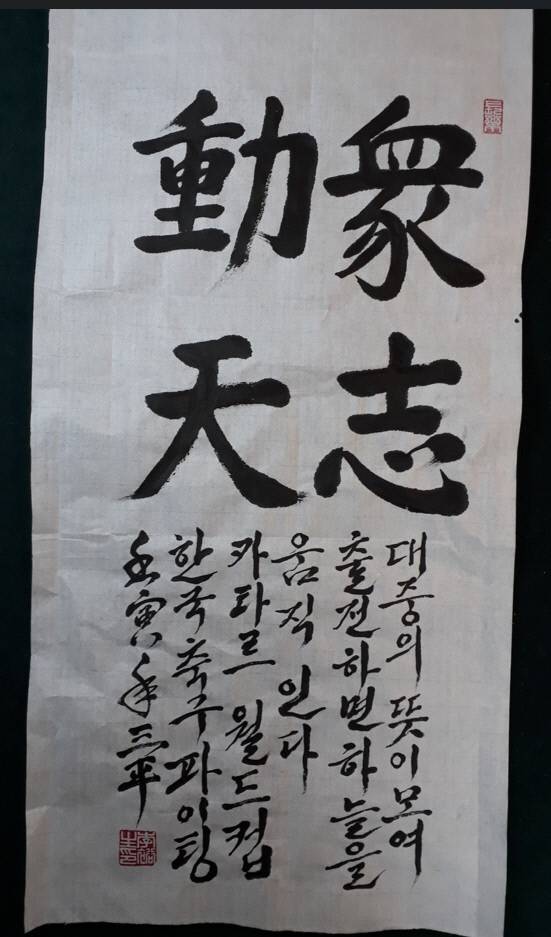 衆志
動天
대중의 뜻이 모여
출전하면 하늘을
움직인다
카타르 월드컵
한국축구 파이팅
壬寅年 三平